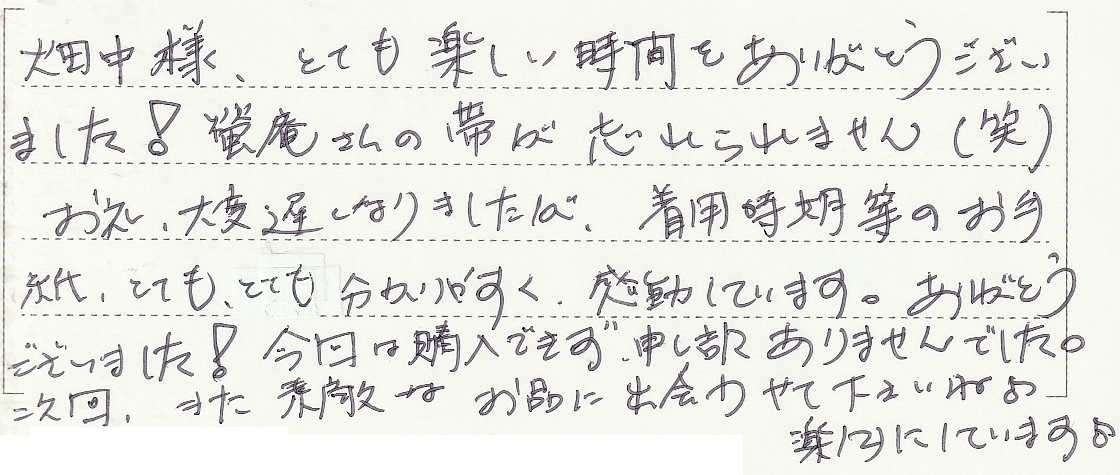 畑中様、とても楽しい時間をありがとうござい
ました！蠻庵さんの帯が忘れられません（笑）
お礼、大変遅くなりましたが、着用時期等のお手
紙、とても、とても分かりやすく、感動しています。ありがとう
ございました！今回は購入できず、申し訳ありませんでした。
次回、また素敵なお品に出会わせて下さいね♪
楽しみにしています♪